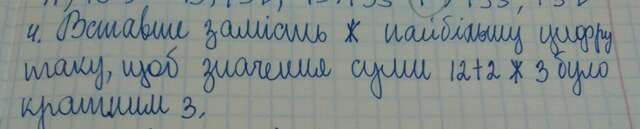 4. Вставте замість * найбільшу цифру
таку, щоб значення суми 12+2 * 3 було
кратним 3.